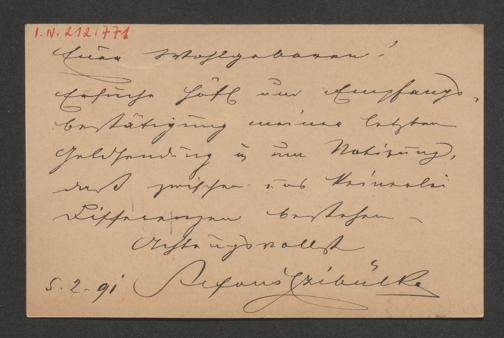 I.N. 212.771
Euer Wohlgeboren!
Ersuche höfl um Empfangs-
bestätigung meiner letzten
Geldsendung u um Notirung,
daß zwischen uns keinerlei
Differenzen bestehen –
Achtungsvollst
5.2.91 Alfons Czibulka